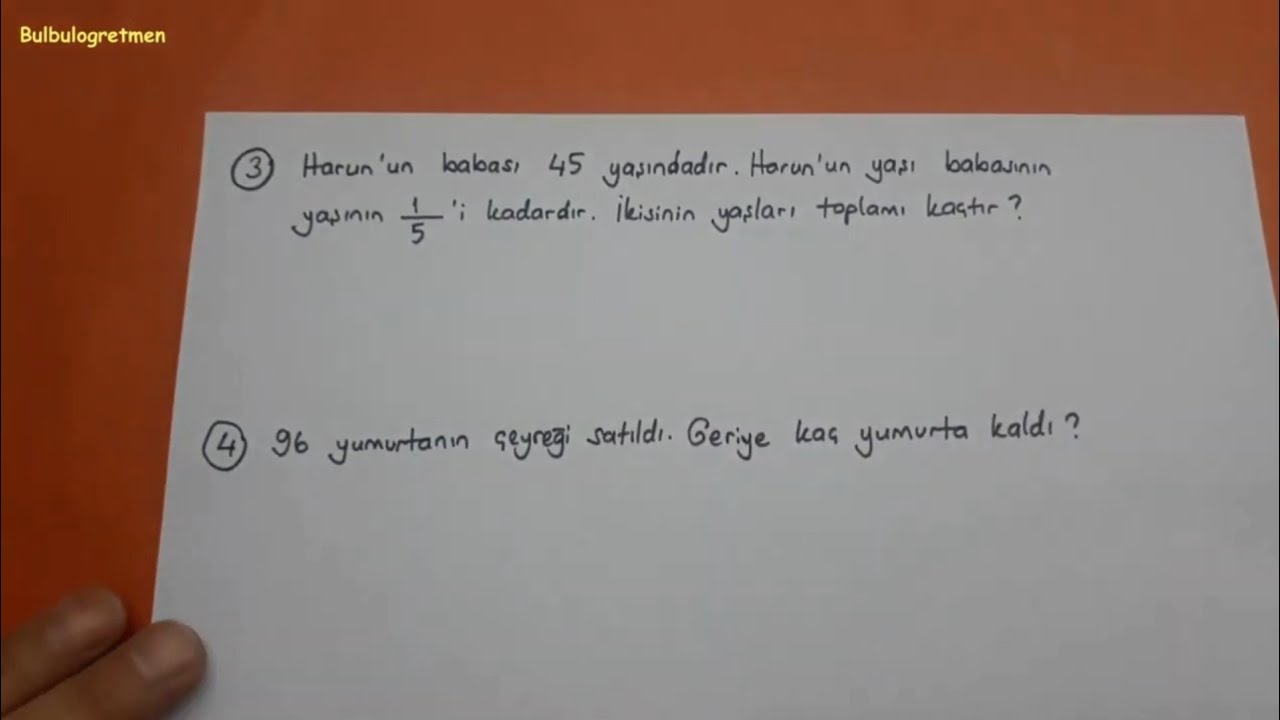 Bulbulogretmen
3 Harun'un babası 45 yaşındadır. Harun'un yaşı babasının
yaşının 1/5 'i kadardır. İkisinin yaşları toplamı kaçtır?
4 96 yumurtanın çeyreği satıldı. Geriye kaç yumurta kaldı?